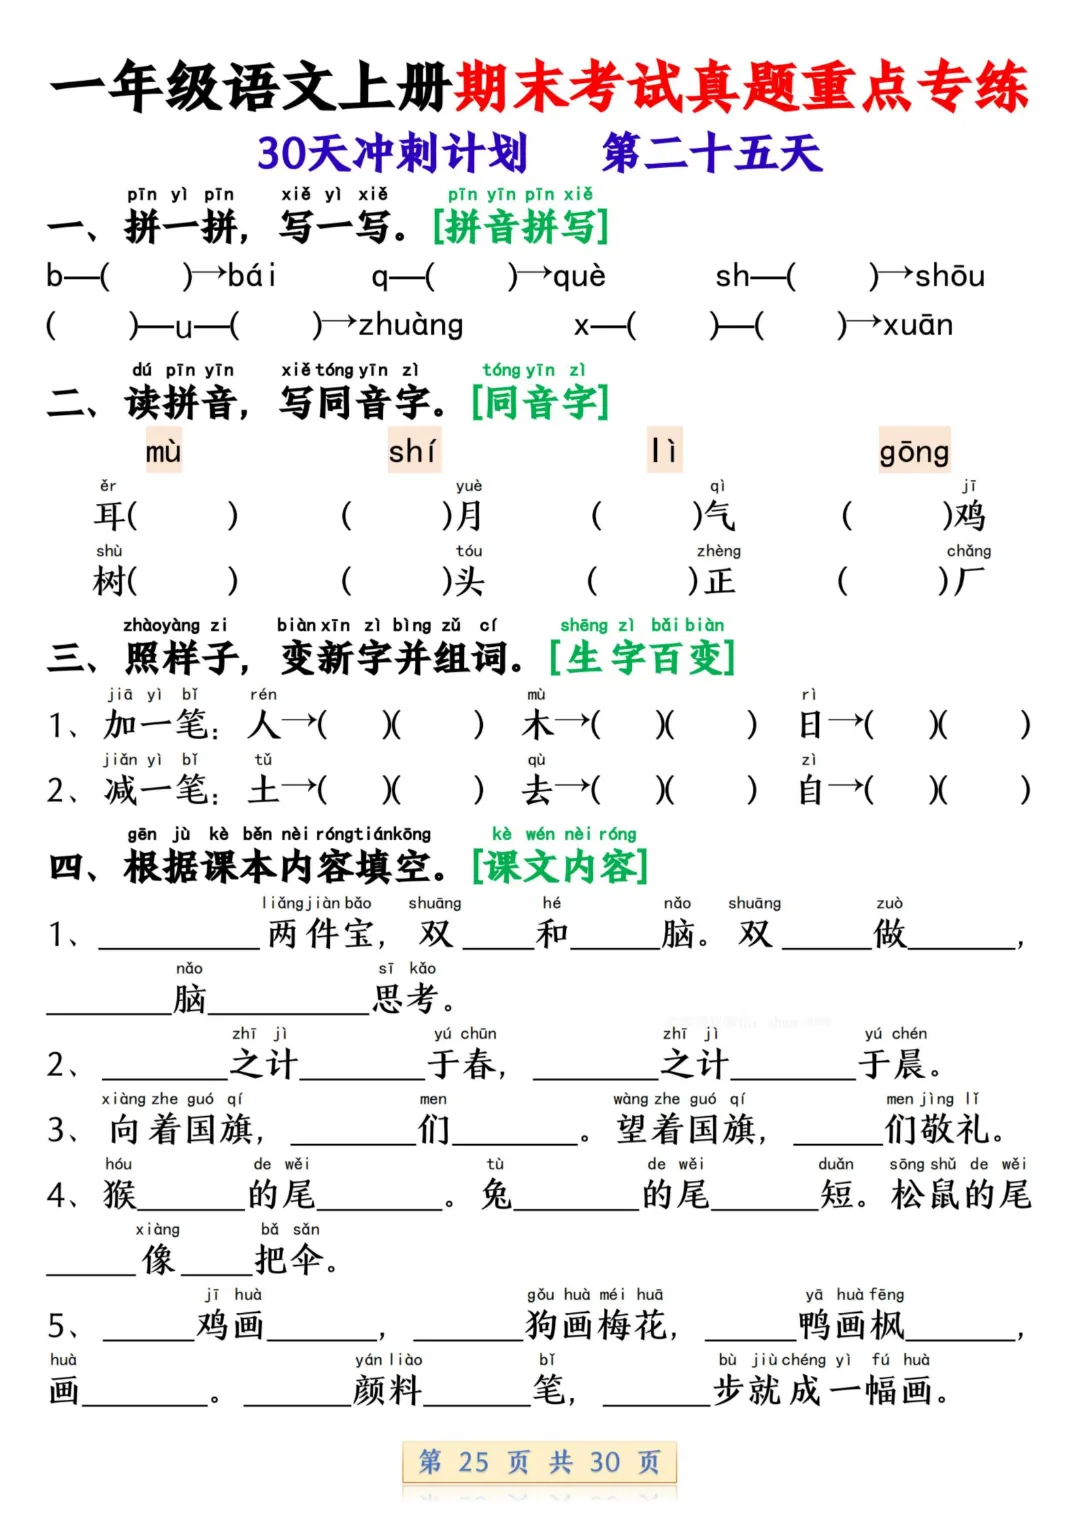 一年级语文上册期末考试真题重点专练
30天冲刺计划 第二十五天
pīn yì pīn xiě yì xiě pīn yīn pīn xiě
一、拼一拼，写一写。[拼音拼写]
b—( )→bái q—( )→què sh—( )→shōu
( )—u—( )→zhuàng x—( )—( )→xuān
dú pīn yīn xiě tóng yīn zì tóng yīn zì
二、读拼音，写同音字。[同音字]
mù shí lì gōng
ěr yuè qì jī
耳( ) ( )月 ( )气 ( )鸡
shù tóu zhèng chǎng
树( ) ( )头 ( )正 ( )厂
zhào yàng zi biàn xīn zì bìng zǔ cí shēng zì bǎi biàn
三、照样子，变新字并组词。[生字百变]
jiā yì bǐ rén mù rì
1、加一笔：人→( )( ) 木→( )( ) 日→( )( )
jiǎn yì bǐ tǔ qù zì
2、减一笔：土→( )( ) 去→( )( ) 自→( )( )
gēn jù kè běn nèi róng tián kōng kè wén nèi róng
四、根据课本内容填空。[课文内容]
liǎng jiàn bǎo shuāng hé nǎo shuāng zuò
1、_________两件宝，双____和_____脑。双_____做______，
nǎo sī kǎo
_______脑_________思考。
zhī jì yú chūn zhī jì yú chén
2、_______之计_______于春，_______之计_______于晨。
xiàng zhe guó qí men wàng zhe guó qí men jìng lǐ
3、向着国旗，_______们_______。望着国旗，_____们敬礼。
hóu de wěi tù de wěi duǎn sōng shǔ de wěi
4、猴______的尾_______。兔_______的尾______短。松鼠的尾
xiàng bǎ sǎn
_____像____把伞。
jī huà gǒu huà méi huā yā huà fēng
5、_____鸡画______，______狗画梅花，_____鸭画枫______，
huà yán liào bǐ bù jiù chéng yì fú huà
画_______。______颜料______笔，______步就成一幅画。
第 25 页 共 30 页